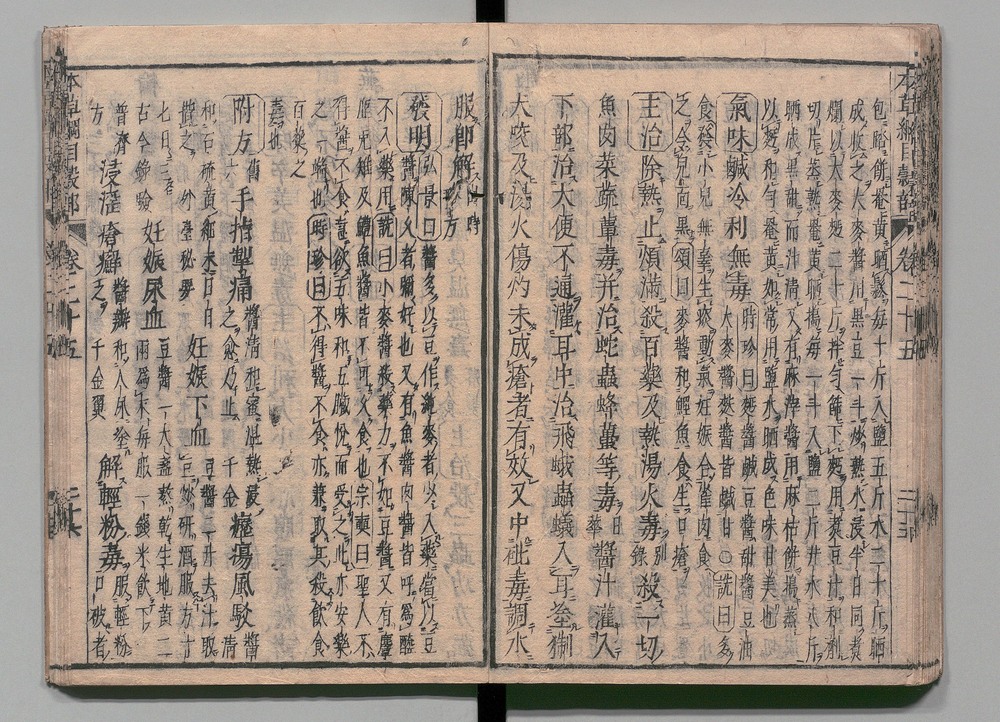 包踏餅罨黃晒鬆每十斤入鹽五斤水二十斤晒
成收之大麥醬用黑豆一斗炒熟水浸半日同煮
爛以大麥麪二十斤拌勻篩下麪用煮豆汁和劑
切片蒸熟罨黃晒搗每一斗入鹽二斤井水八斤
晒成黑甜而汁清又有麻滓醬用麻枯餅搗蒸
以麪和勻罨黃如常用鹽水晒成色味甘美也
氣味鹹冷利無毒時珍曰麪醬鹹豆醬甜醬豆油
大麥醬麩醬皆鹹甘○詵曰多
食發小兒無辜生痰動氣妊娠合雀肉食
之令兒面黑頌曰麥醬和鯉魚食生口瘡
主治除熱止煩滿殺百藥及熱湯火毒別錄殺一切
魚肉菜蔬蕈毒幷治蛇蟲蜂蠆等毒日華醬汁灌入
下部治大便不通灌耳中治飛蛾蟲蟻入耳塗猘
犬咬及湯火傷灼未成瘡者有效又中砒毒調水
服卽解時珍方
發明弘景曰醬多以豆作純麥者少入藥當以豆
醬陳久者彌好也又有魚醬肉醬皆呼爲醢
不入藥用詵曰小麥醬殺藥力不如豆醬又有麞
鹿兎雉及鱧魚醬皆不可久食也宗奭曰聖人不
得醬不食意欲五味和五臟悅而受之此亦安樂
之一端也時珍曰不得醬不食亦兼取其殺飲食
百藥之
毒也
附方舊六手指掣痛醬清和蜜溫熱浸之愈乃止千金癧瘍風駁醬清
和石硫黃細末日日揩之外臺秘要妊娠下血豆醬二升去汁取豆炒研酒服方寸
七日三古今錄驗妊娠尿血豆醬一大盞熬乾生地黃二兩爲末每服一錢米飲下
普濟方浸淫瘡癬醬瓣和人尿塗之千金翼解輕粉毒服輕粉口破者
本草綱目穀部
卷二十五